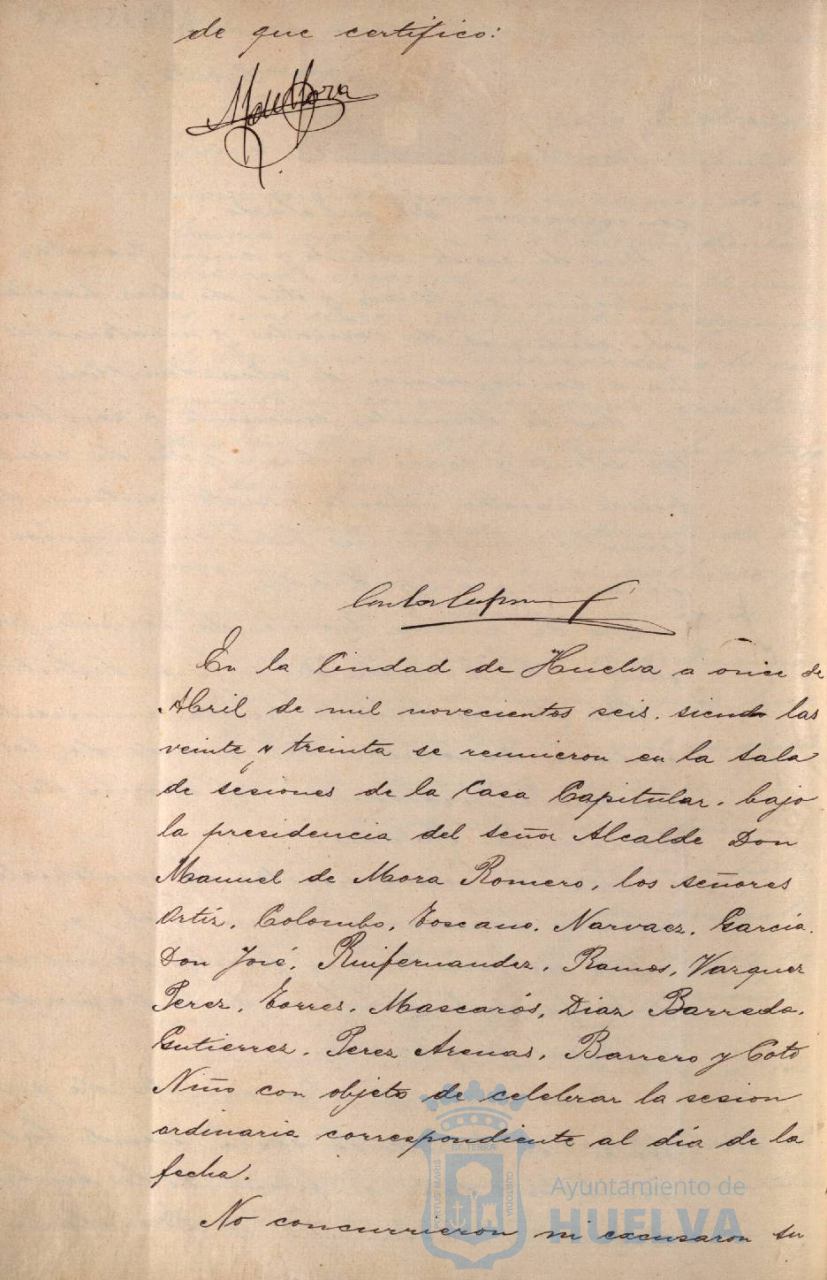 de que certifico:
M de Mora
En la Ciudad de Huelva a once de
Abril de mil novecientos seis. siendo las
veinte y treinta se reunieron en la sala
de sesiones de la Casa Capitular. bajo
la presidencia del señor Alcalde Don
Manuel de Mora Romero, los señores
Ortiz. Colombo, Toscano. Narvaez. García.
Don José, Ruifernandez. Ramos, Vazquez
Perez. Torres. Mascarós, Díaz Barreda.
Gutierrez. Perez Arenas. Barrero y Coto
Niño con objeto de celebrar la sesion
ordinaria correspondiente al día de la
fecha.
No concurrieron ni excusaron su
Ayuntamiento de
HUELVA